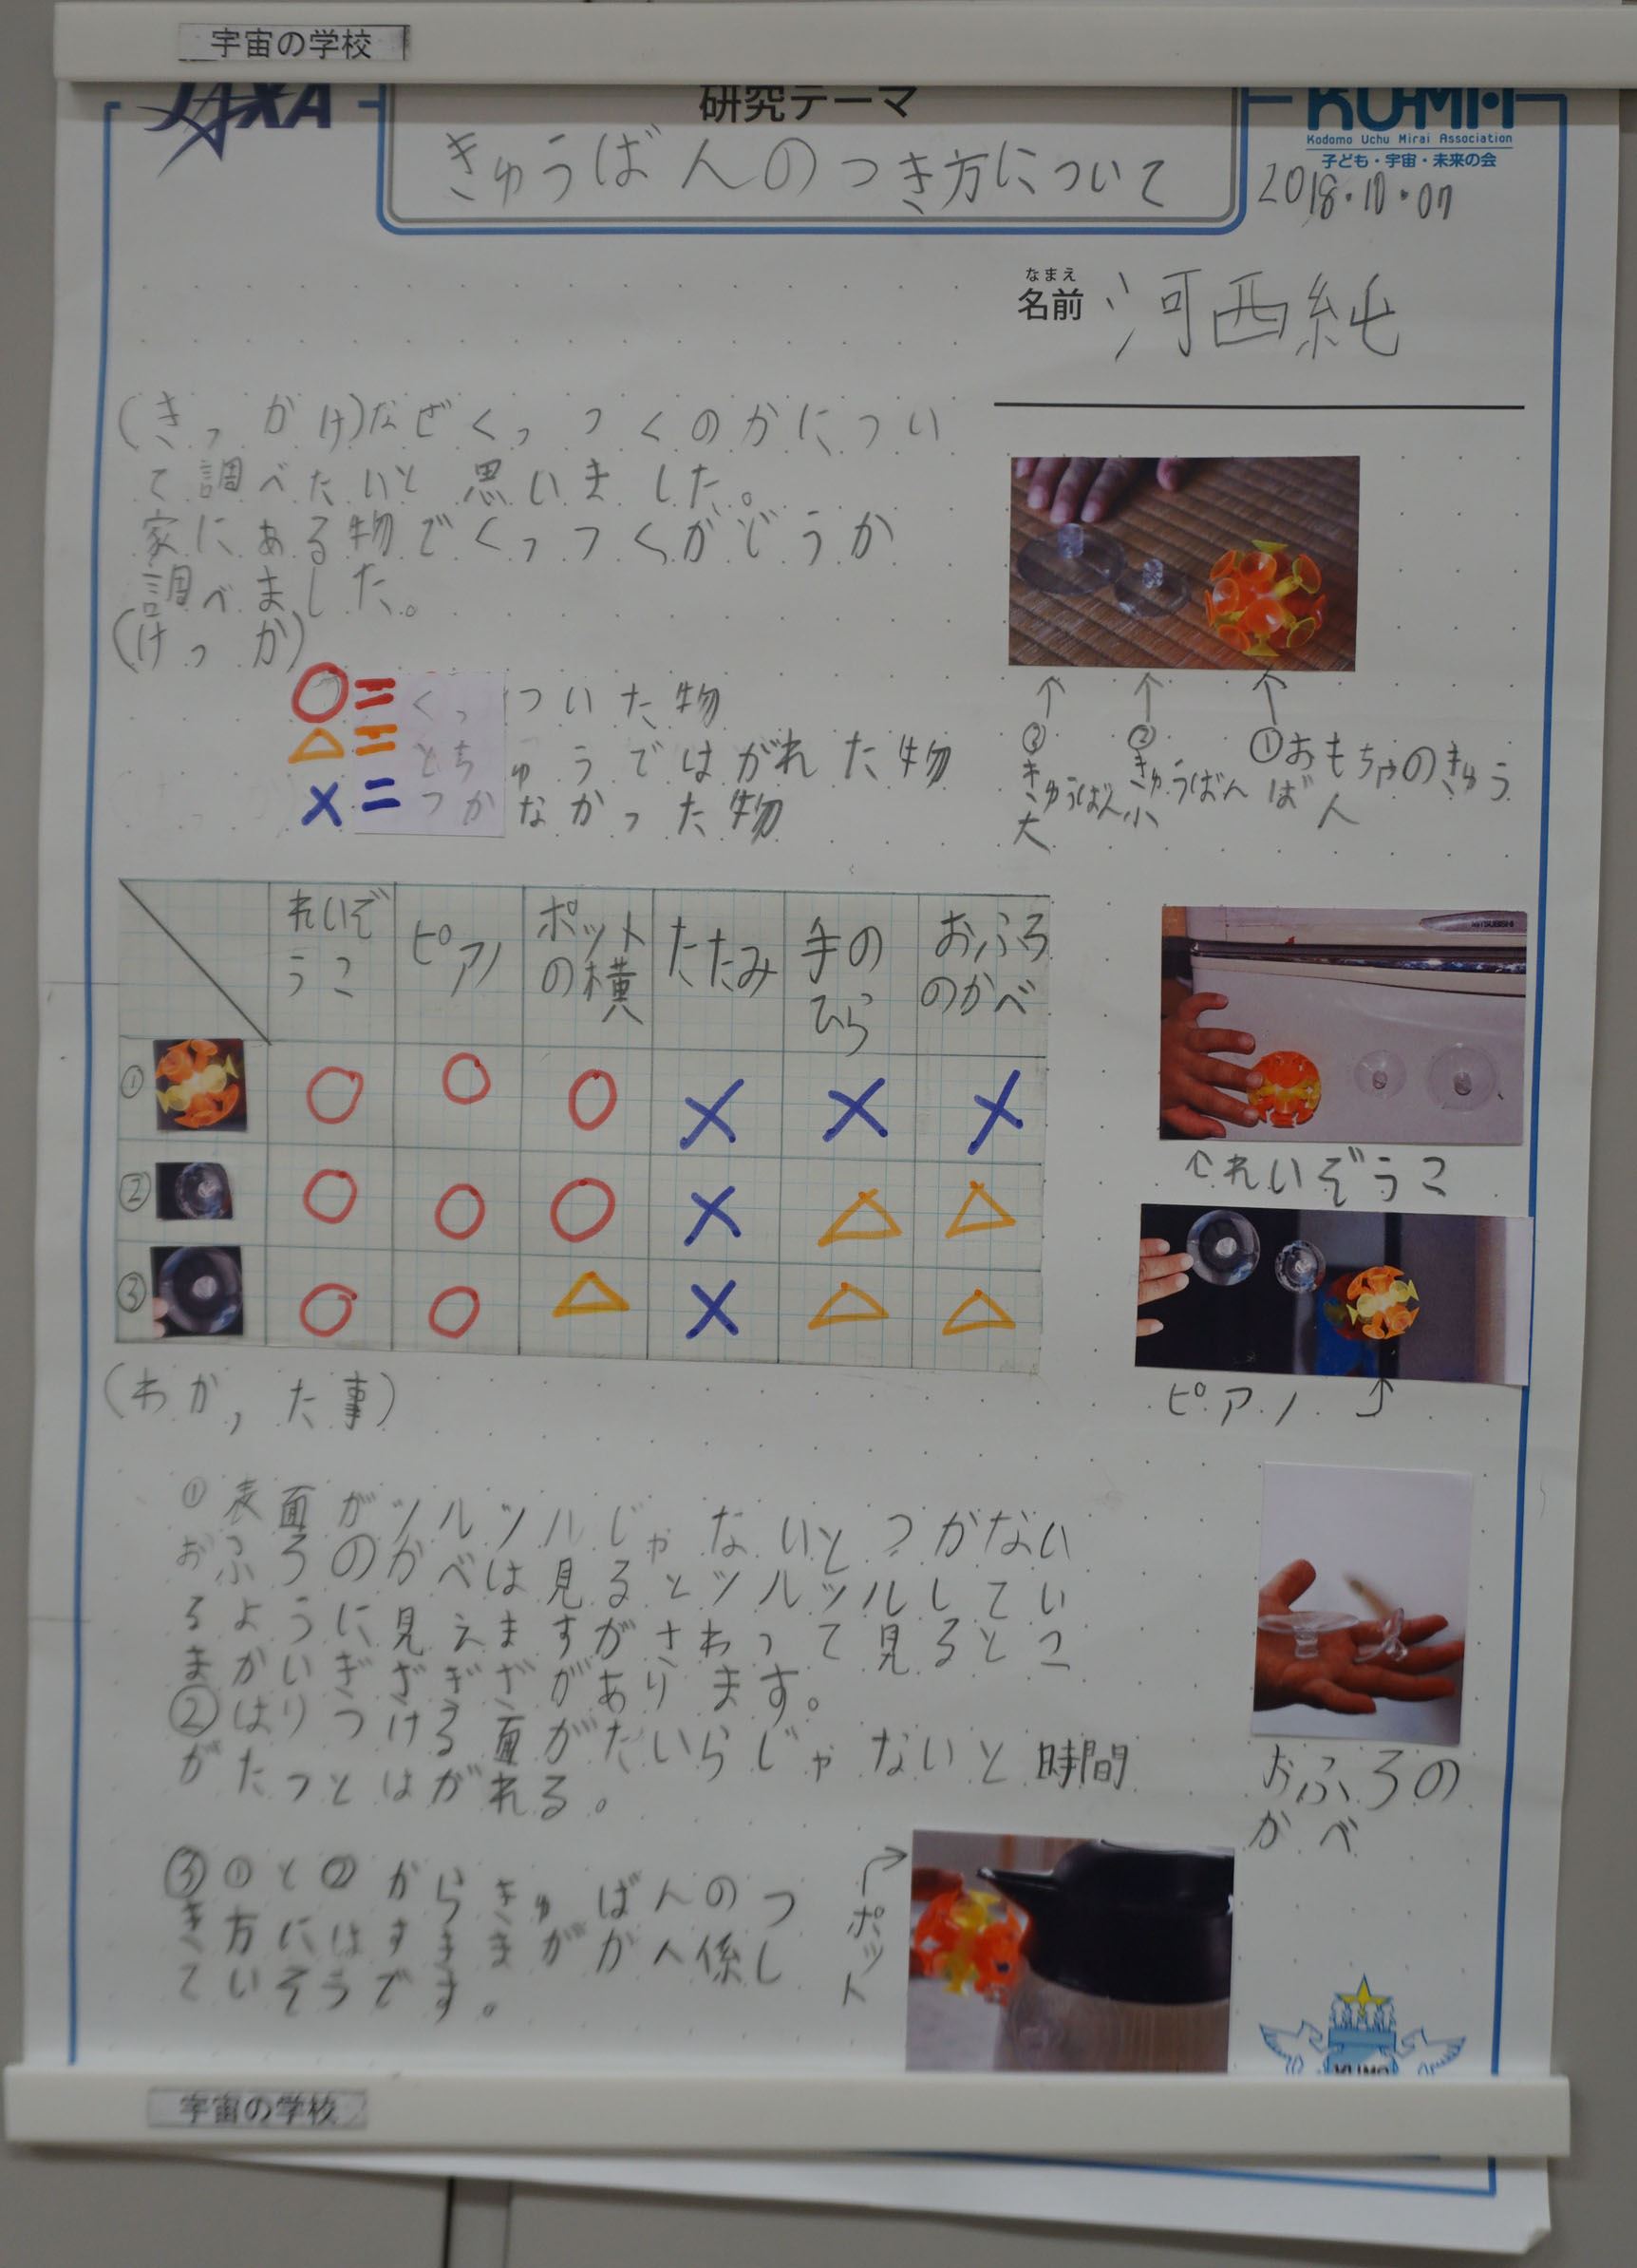 宇宙の学校
JAXA
研究テーマ
きゅうばんのつき方について
KU-MA
Kodomo Uchu Mirai Association
子ども・宇宙・未来の会
2018.10.07
なまえ
名前 河西純
(きっかけ)なぜくっつくのかについ
て調べたいと思いました。
家にある物でくっつくかどうか
調べました。
(けっか)
○=くっついた物
△=とちゅうではがれた物
×=つかなかった物
↑ ↑ ↑
③きゅうばん大
②きゅうばん小
①おもちゃのきゅう
ばん
れいぞうこ ピアノ ポットの横 たたみ 手のひら おふろのかべ
① ○ ○ ○ × × ×
② ○ ○ ○ × △ △
③ ○ ○ △ × △ △
MITSUBISHI
↑れいぞうこ
ピアノ ↑
(わかった事)
①表面がツルツルじゃないとつかない
おふろのかべは見るとツルツルしてい
るように見えますがさわって見るとこ
まかいぎざぎざがあります。
②はりつける面がたいらじゃないと時間
がたつとはがれる。
③①と②からきゅばんのつ
き方にはすきまがかん係し
ていそうです。
おふろの
かべ
ポット
宇宙の学校